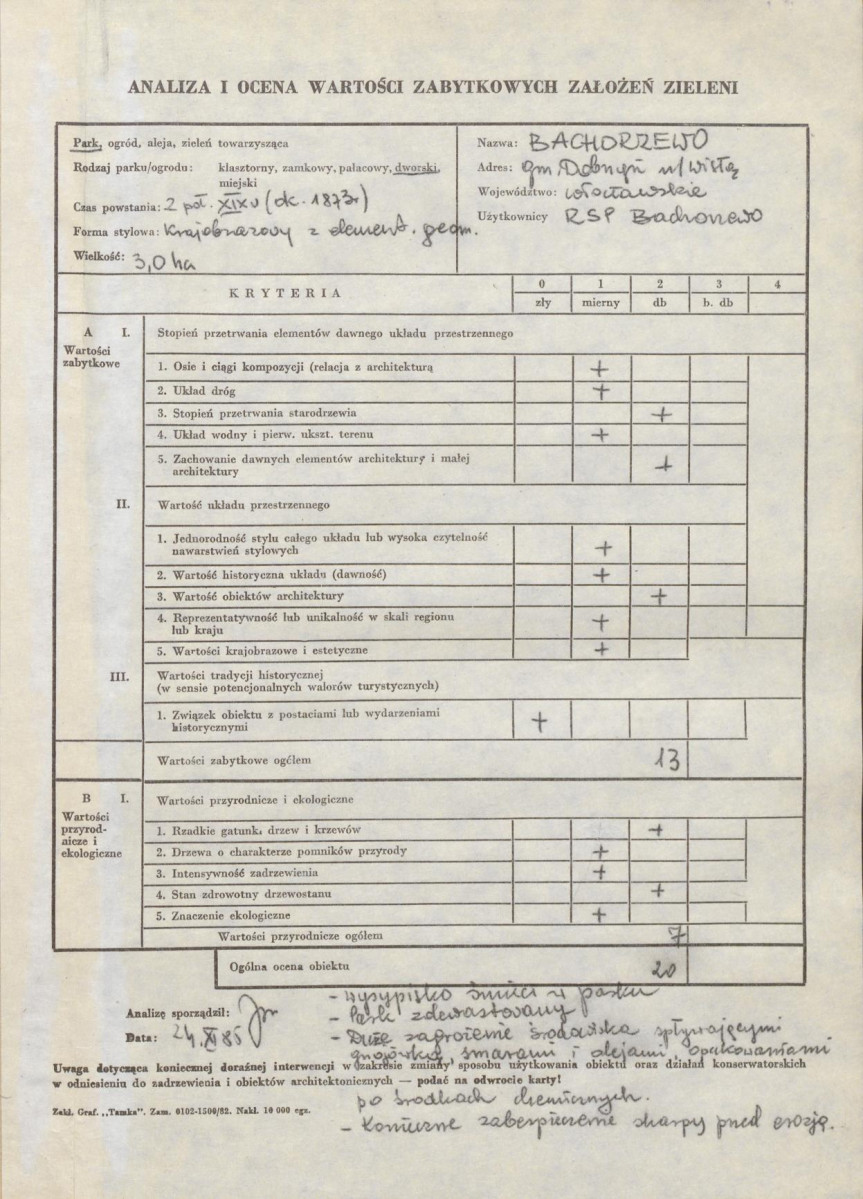 ANALIZA I OCENA WARTOŚCI ZABYTKOWYCH ZAŁOŻEŃ ZIELENI
Park, ogród, aleja, zieleń towarzysząca
Rodzaj parku/ogrodu: klasztorny, zamkowy, pałacowy, dworski,
miejski
Czas powstania: 2 poł. XIX w (ok. 1873r)
Forma stylowa: Krajobrazowy z element. geom.
Wielkość: 3,0 ha
Nazwa: BACHORZEWO
Adres: gm. Dobrzyń n/Wisłą
Województwo: włocławskie
Użytkownicy RSP Bachorzewo
KRYTERIA
0 1 2 3 4
zły mierny db b. db
A I. Stopień przetrwania elementów dawnego układu przestrzennego
Wartości
zabytkowe
1. Osie i ciągi kompozycji (relacja z architekturą +
2. Układ dróg +
3. Stopień przetrwania starodrzewia +
4. Układ wodny i pierw. ukszt. terenu +
5. Zachowanie dawnych elementów architektury i małej
architektury +
II. Wartość układu przestrzennego
1. Jednorodność stylu całego układu lub wysoka czytelność
nawarstwień stylowych +
2. Wartość historyczna układu (dawność) +
3. Wartość obiektów architektury +
4. Reprezentatywność lub unikalność w skali regionu
lub kraju +
5. Wartości krajobrazowe i estetyczne +
III. Wartości tradycji historycznej
(w sensie potencjonalnych walorów turystycznych)
1. Związek obiektu z postaciami lub wydarzeniami
historycznymi +
Wartości zabytkowe ogółem 13
B I. Wartości przyrodnicze i ekologiczne
Wartości
przyrod-
nicze i
ekologiczne
1. Rzadkie gatunki drzew i krzewów +
2. Drzewa o charakterze pomników przyrody +
3. Intensywność zadrzewienia +
4. Stan zdrowotny drzewostanu +
5. Znaczenie ekologiczne +
Wartości przyrodnicze ogółem 7
Ogólna ocena obiektu 20
Analizę sporządził:
Data: 24.XI 85
- wysypisko śmieci w parku
- Park zdewastowany
- Duże zagrożenie środowiska spływającymi
gnojówką, smarami i olejami, opakowaniami
Uwaga dotycząca koniecznej doraźnej interwencji w zakresie zmiany sposobu użytkowania obiektu oraz działań konserwatorskich
w odniesieniu do zadrzewienia i obiektów architektonicznych — podać na odwrocie karty!
po środkach chemicznych.
Zakł. Graf. „Tamka". Zam. 0102-1500/82. Nakł. 10 000 egz.
- Konieczne zabezpieczenie skarpy przed erozją.